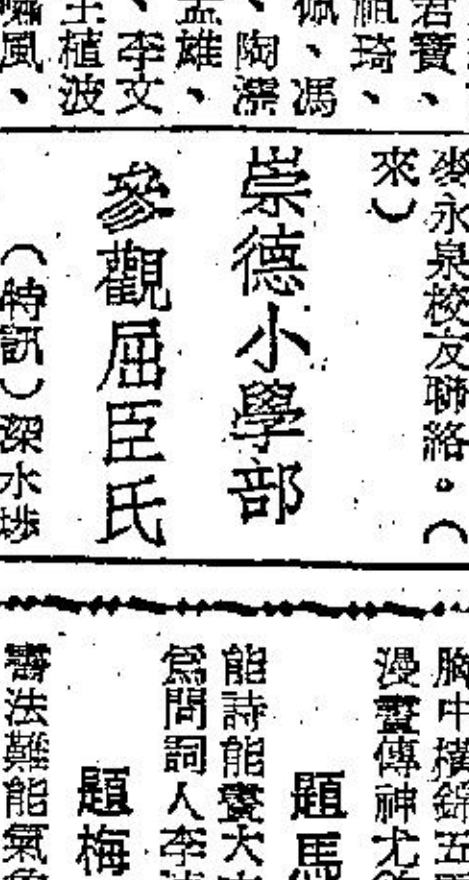 君寶、
祖琦、
佩、馮
、陶潔
孟雄、
、李文
王植波
嘯風、
麥永泉校友聯絡。（
來）
崇德小學部
參觀屈臣氏
（特訊）深水埗
胸中橫錦五
漫畫傳神尤
題馬
能詩能畫大
爲問詞人李
題梅
畫法難能氣